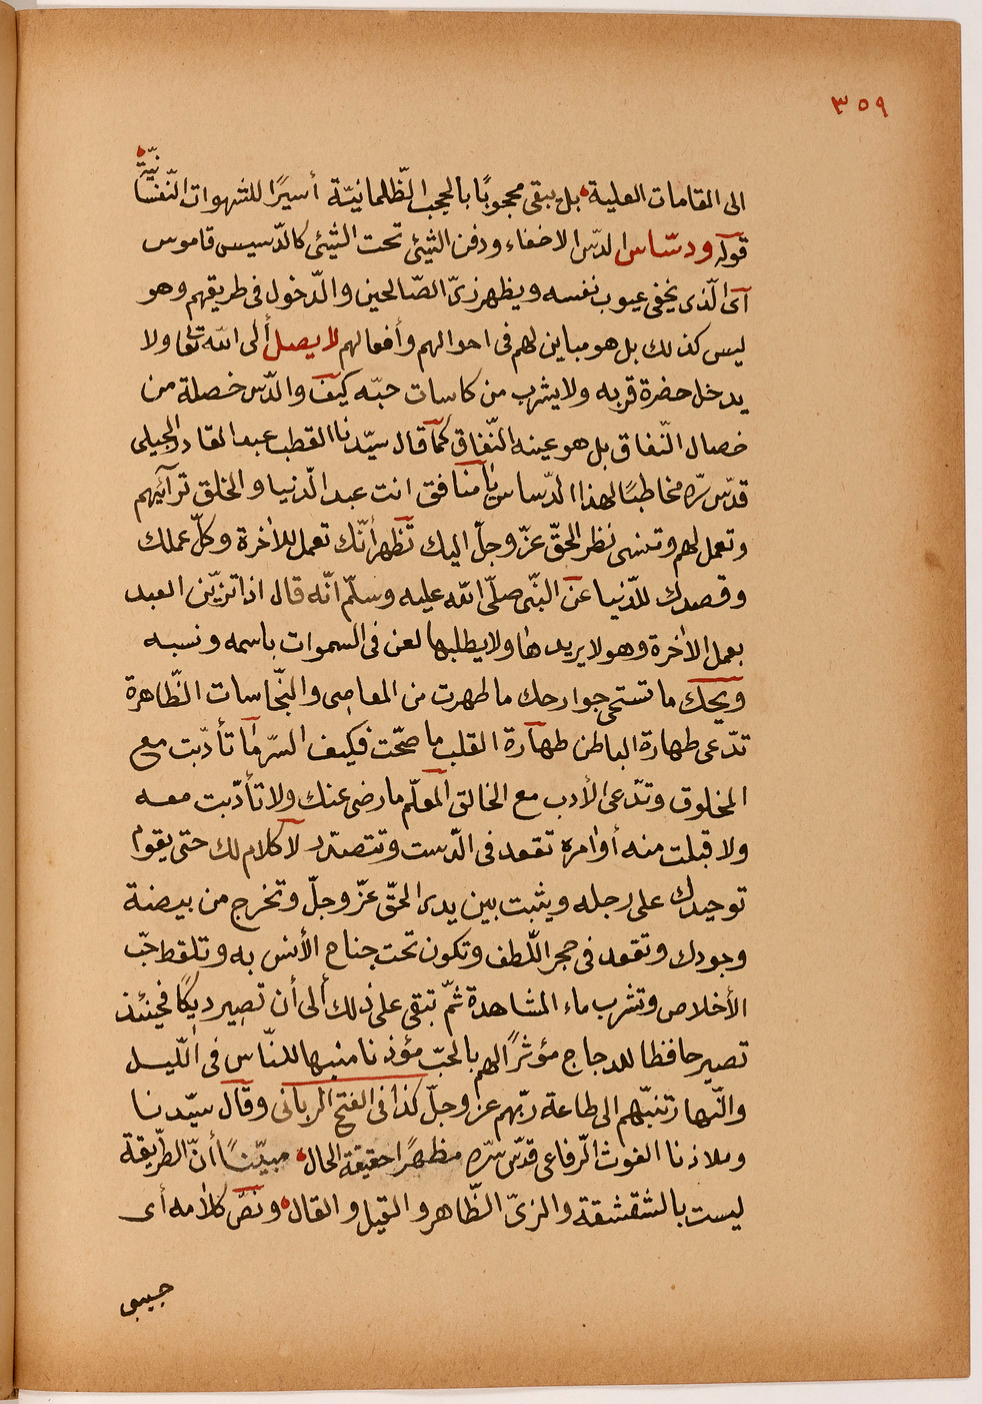 ٣٥٩
الى المقامات العلية بل يبقى محجوبًا بالحجب الظّلمانيّة أسيرًا للشهوات النّفسانيّة
قوله ودسّاس الدّس الاخفاء ودفن الشيئ تحت الشيئ كالدّسيس قاموس
أى الّذى يخفى عيوب نفسه ويظهر زىّ الصّالحين والدّخول فى طريقهم وهو
ليس كذلك بل هو مباين لهم فى احوالهم وأفعالهم لا يصل ألى الله تعالى ولا
يدخل حضرة قربه ولا يشرب من كاسات حبّه كيف والدّس خصلة من
خصال النّفاق بل هو عينه النّفاق كما قال سيّدنا القطب عبد القادر الجيلى
قدّس سرّه مخاطبًا لهذا الدّساس يا منافق انت عبد الدّنيا والخلق ترآئيهم
وتعمل لهم وتنسى نظر الحقّ عزّ وجلّ اليك تظهر أنّك تعمل للآخرة وكلّ عملك
وقصدك للدّنيا عن النّبى صلّى الله عليه وسلّم انّه قال اذا تزيّن العبد
بعمل الآخرة وهو لا يريدها ولا يطلبها لعن فى السموات باسمه ونسبه
ويحك ما تستحى جوارحك ما طهرت من المعاصى والنّجاسات الظّاهرة
تدّعى طهارة الباطن طهارة القلب ما صحّت فكيف السرّ ما تأدّبت مع
المخلوق وتدّعى الأدب مع الخالق المعلّم ما رضى عنك ولا تأدّبت معه
ولا قبلت منه أوامره تقعد فى الدّست وتتصدّر لا كلام لك حتى يقوم
توحيدك على رجله ويثبت بين يدى الحقّ عزّ وجلّ وتخرج من بيضة
وجودك وتقعد فى حجر اللّطف وتكون تحت جناح الأنس به وتلقط حبّ
الأخلاص وتشرب ماء المشاهدة ثمّ تبقى على ذلك ألى أن تصير ديكًا فحينئذ
تصير حافظا للدجاج مؤثرًا لهم بالحبّ مؤذنا منبها للنّاس فى اللّيل
والنّهار تنبّههم الى طاعة ربّهم عز وجلّ كذا فى الفتح الربانى وقال سيّدنا
وملاذنا الغوث الرّفاعى قدّس سرّه مظهرًا حقيقة الحال مبيّنًا أنّ الطّريقة
ليست بالشقشقة والزىّ الظّاهر والقيل والقال ونصّ كلامه أى
حبيبى